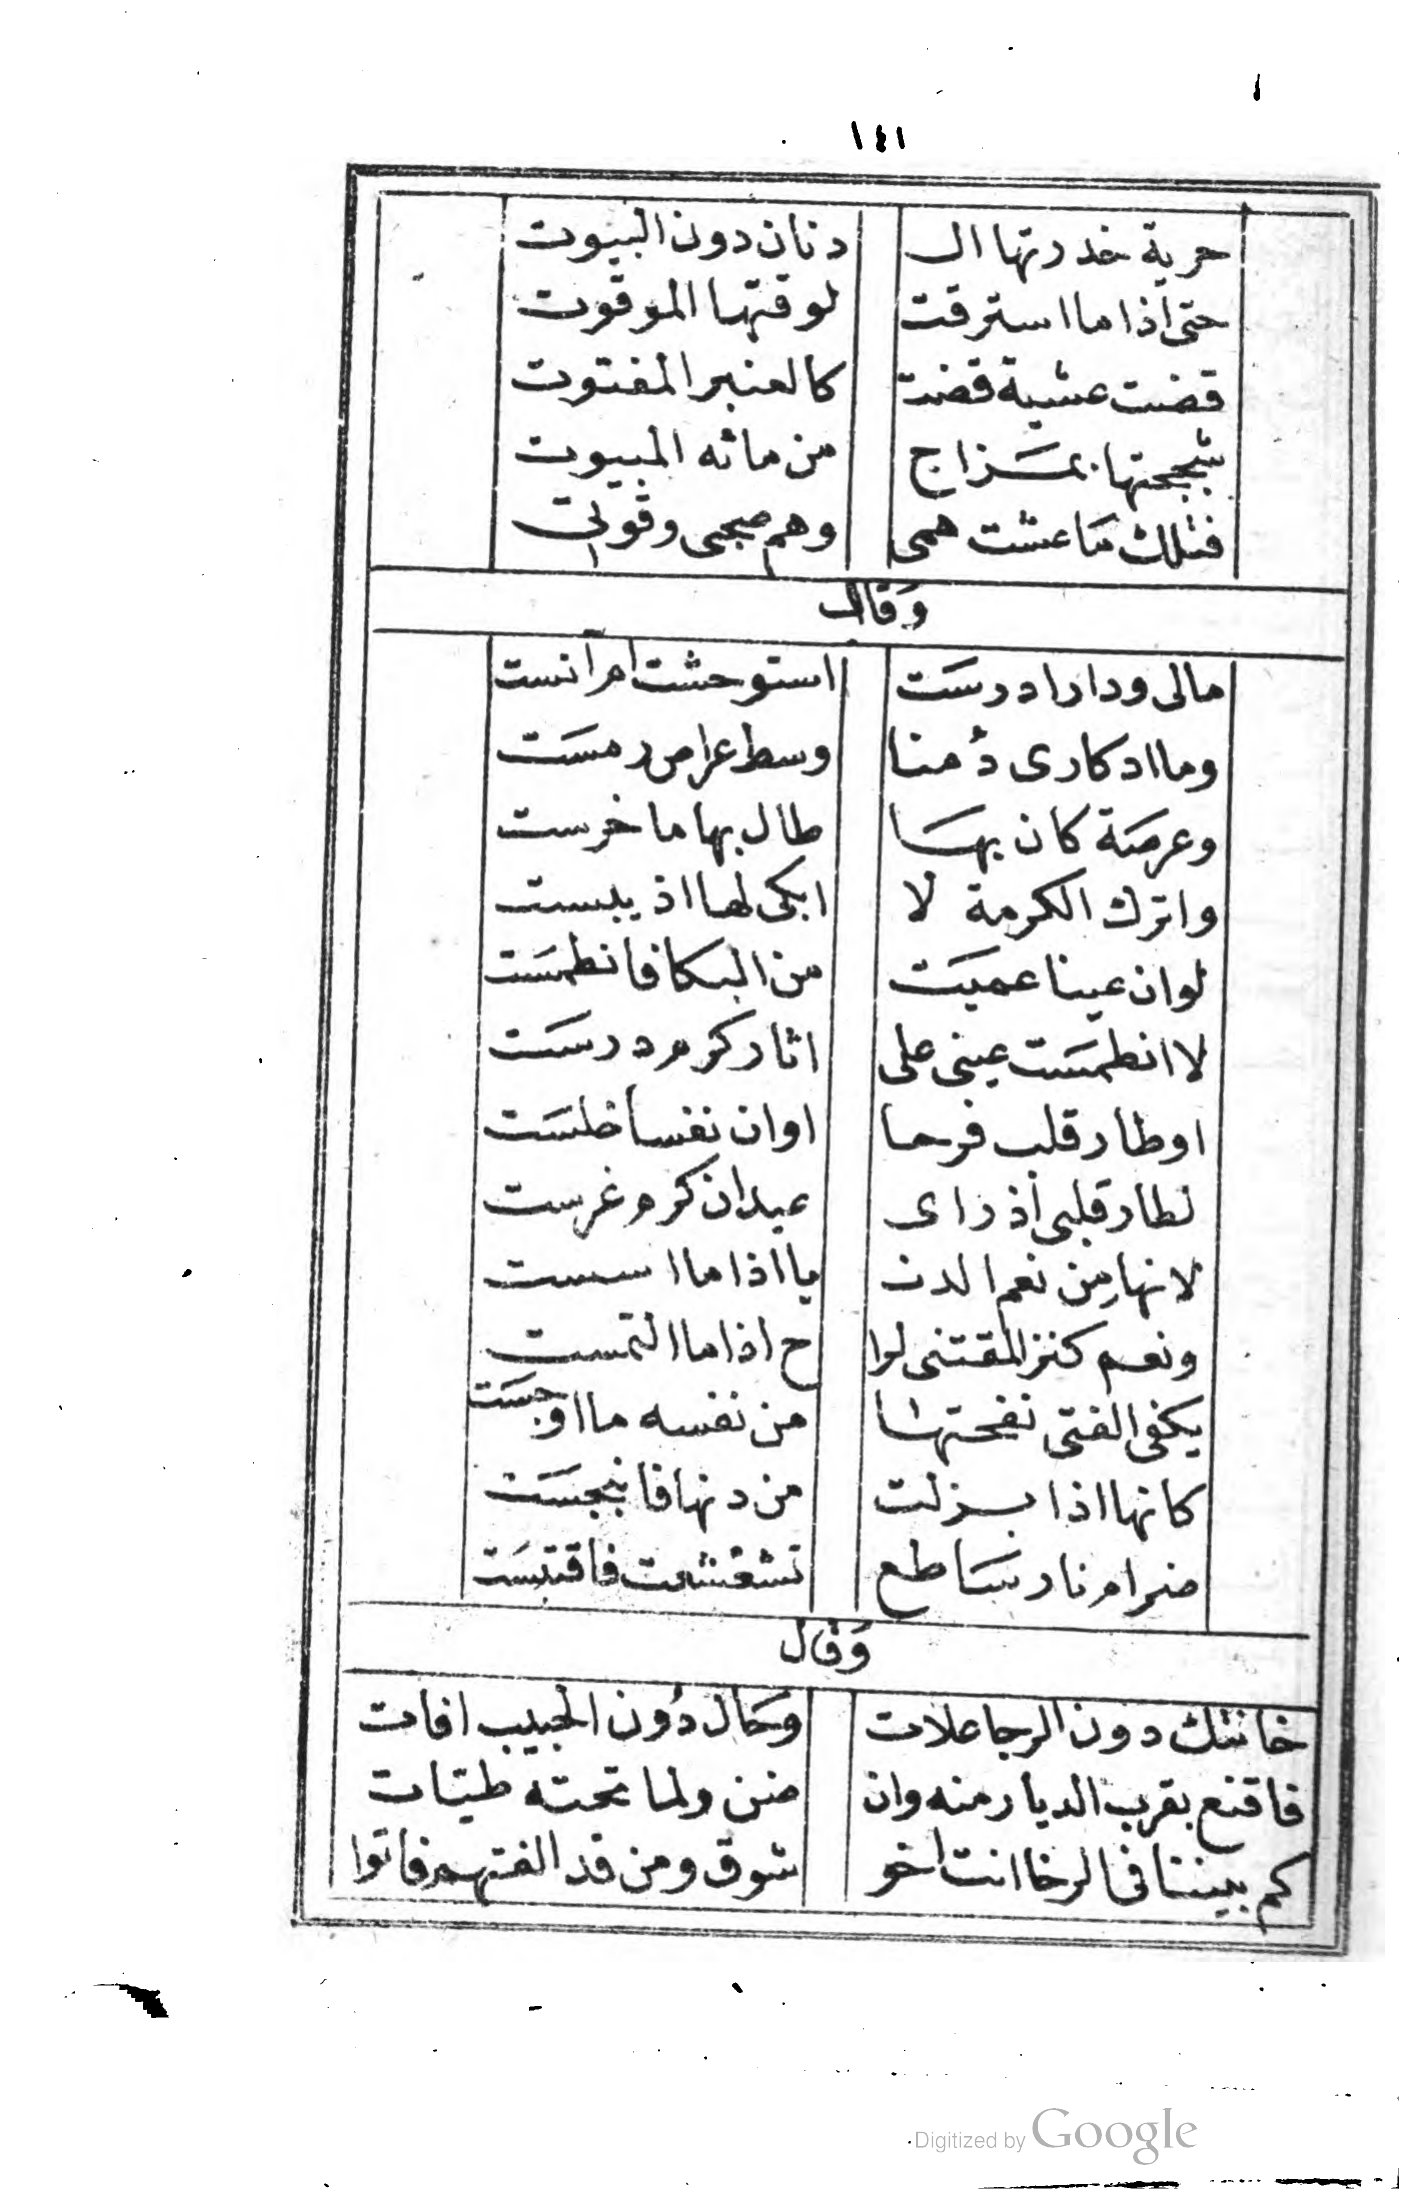 ١٤١
حرية خدرتها ال دنان دون البيوت
حتى اذا ما استرقت لوقتها الموقوت
قضت عشية قضت كالعنبر المفتوت
شججتها بمزاج من مائه المبيوت
فتلك ما عشت همى وهم صحبى وقوتى
وقال
مالى ودارا درست استوحشت ام آنست
وما ادكارى دمنا وسط عراص رمست
وعرصة كان بها طال بها ما خرست
واترك الكرمة لا ابكى لها اذ يبست
لوان عينا عميت من البكا فانطمست
لا انطمست عينى على اثار كرم درست
اوطار قلب فرحا اوان نفسا خلست
لطار قلبى اذ راى عيدان كرم غرست
لانها من نعم الدن يا اذا ما اسست
ونعم كنز المقتنى لرا ح اذا ما التمست
يكفى الفتى نفحتها من نفسه ما اوجست
كانها اذا بزلت من دنها فانبجست
ضرام نار ساطع تشعشعت فاقتبست
وقال
خانتك دون الرجا علات وحال دون الحبيب افات
فاقنع بقرب الديار منه وان ضن ولما تحته طيات
كم بيننا فى الرخا انت اخو شوق ومن قد الفتهم فاتوا
Digitized by Google